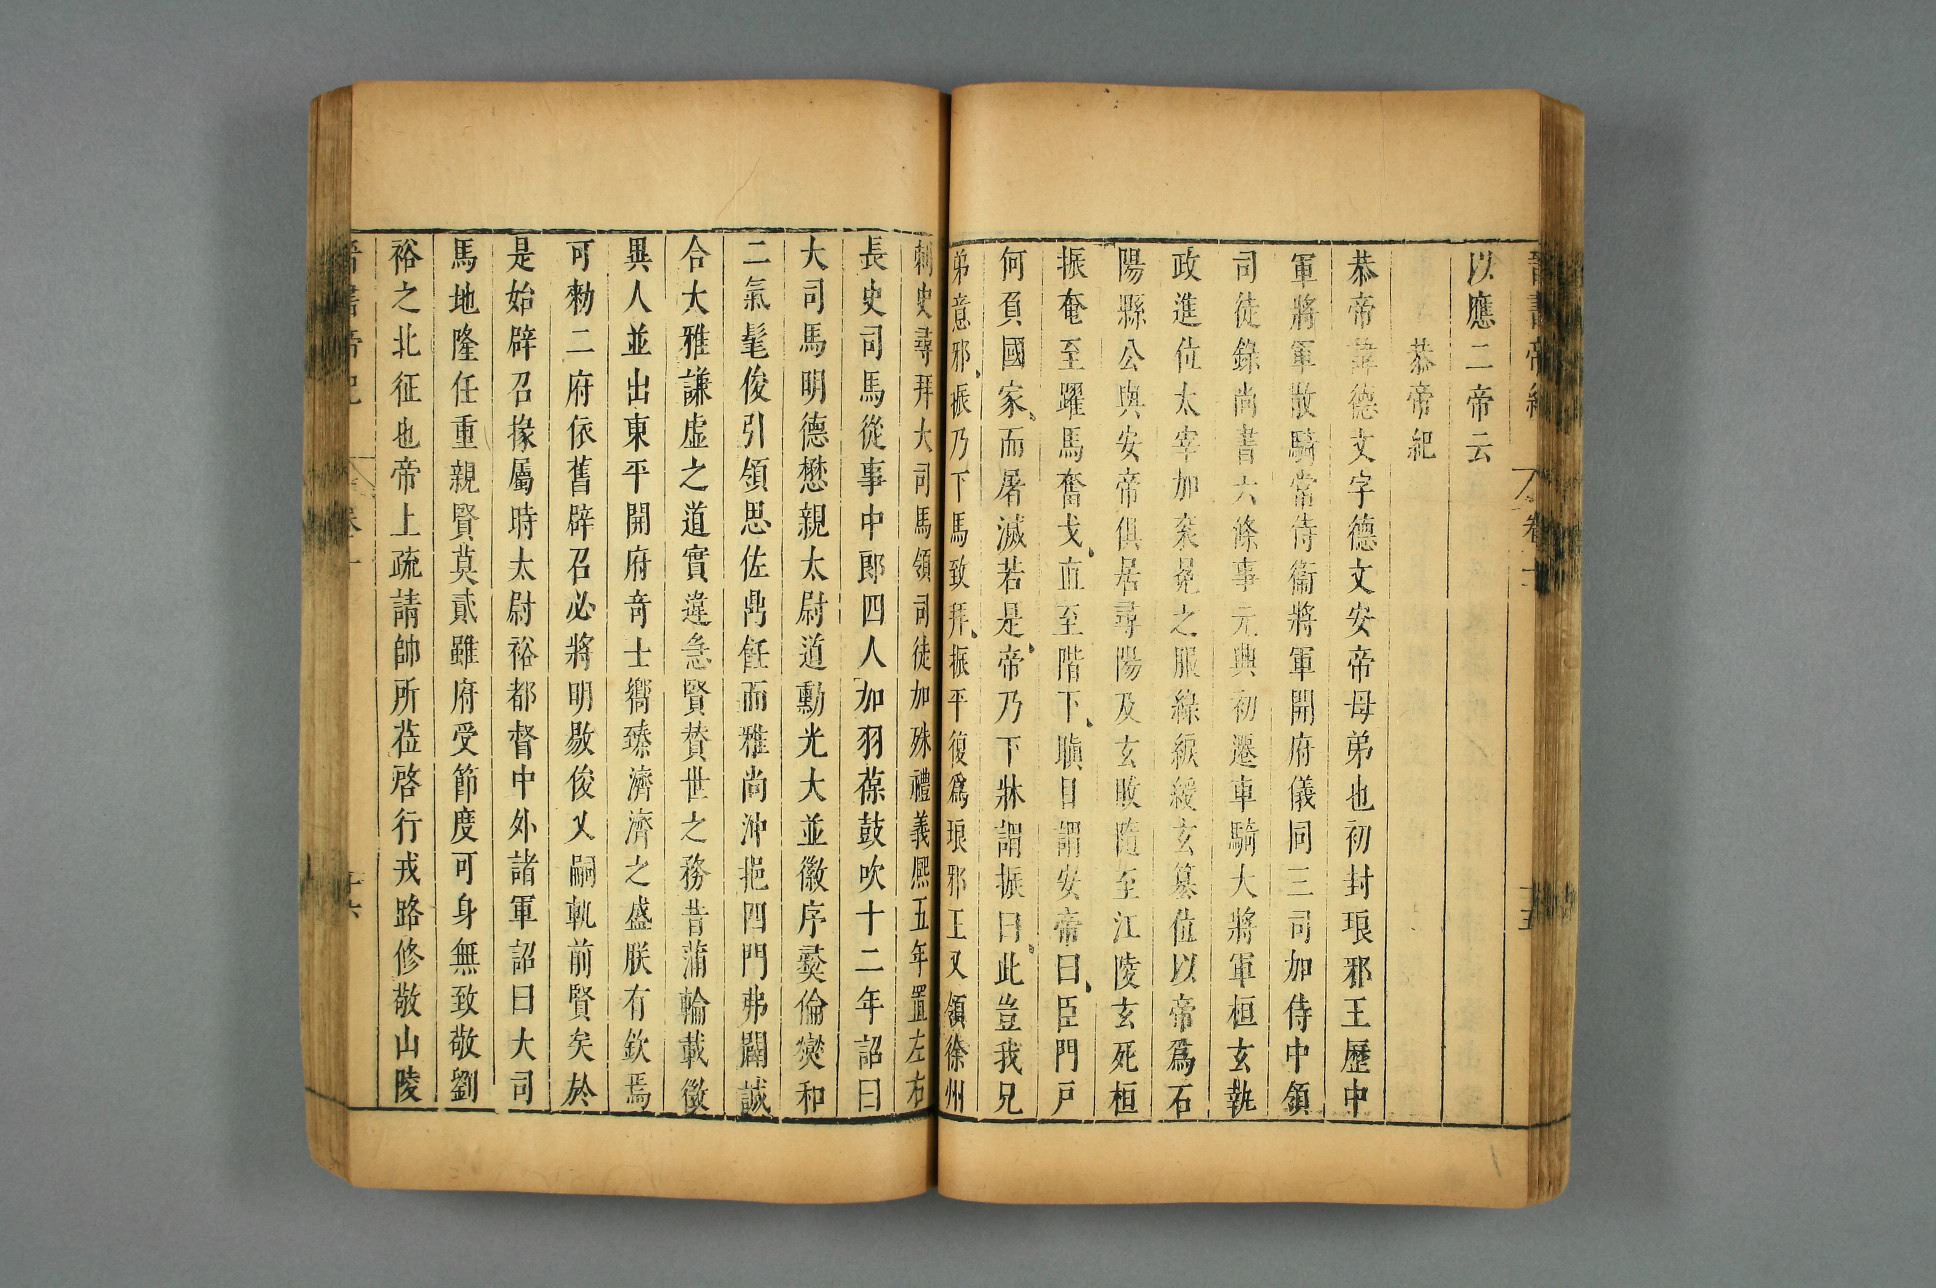 以應二帝云
恭帝紀
恭帝諱德文字德文安帝母弟也初封琅邪王歷中
軍將軍散騎常侍衞將軍開府儀同三司加侍中領
司徒錄尚書六條事元興初遷車騎大將軍桓玄執
政進位太宰加衮冕之服綠綟綬玄篡位以帝爲石
陽縣公與安帝俱居尋陽及玄敗隨至江陵玄死桓
振奄至躍馬奮戈、直至階下、瞋目謂安帝曰、臣門戸
何負國家、而屠滅若是、帝乃下牀謂振曰、此豈我兄
弟意邪、振乃下馬致拜、振平復爲琅邪王又領徐州
刺史尋拜大司馬領司徒加殊禮義熙五年置左右
長史司馬從事中郎四人加羽葆鼓吹十二年詔曰
大司馬明德懋親太尉道勳光大並徽序彝倫燮和
二氣髦俊引領思佐鼎飪而雅尚沖挹四門弗闢誠
合大雅謙虚之道實違急賢賛世之務昔蒲輪載徵
異人並出東平開府竒士嚮臻濟濟之盛朕有欽焉
可勑二府依舊辟召必將明敭俊乂嗣軌前賢矣於
是始辟召掾屬時太尉裕都督中外諸軍詔曰大司
馬地隆任重親賢莫貳雖府受節度可身無致敬劉
裕之北征也帝上疏請帥所莅啓行戎路修敬山陵